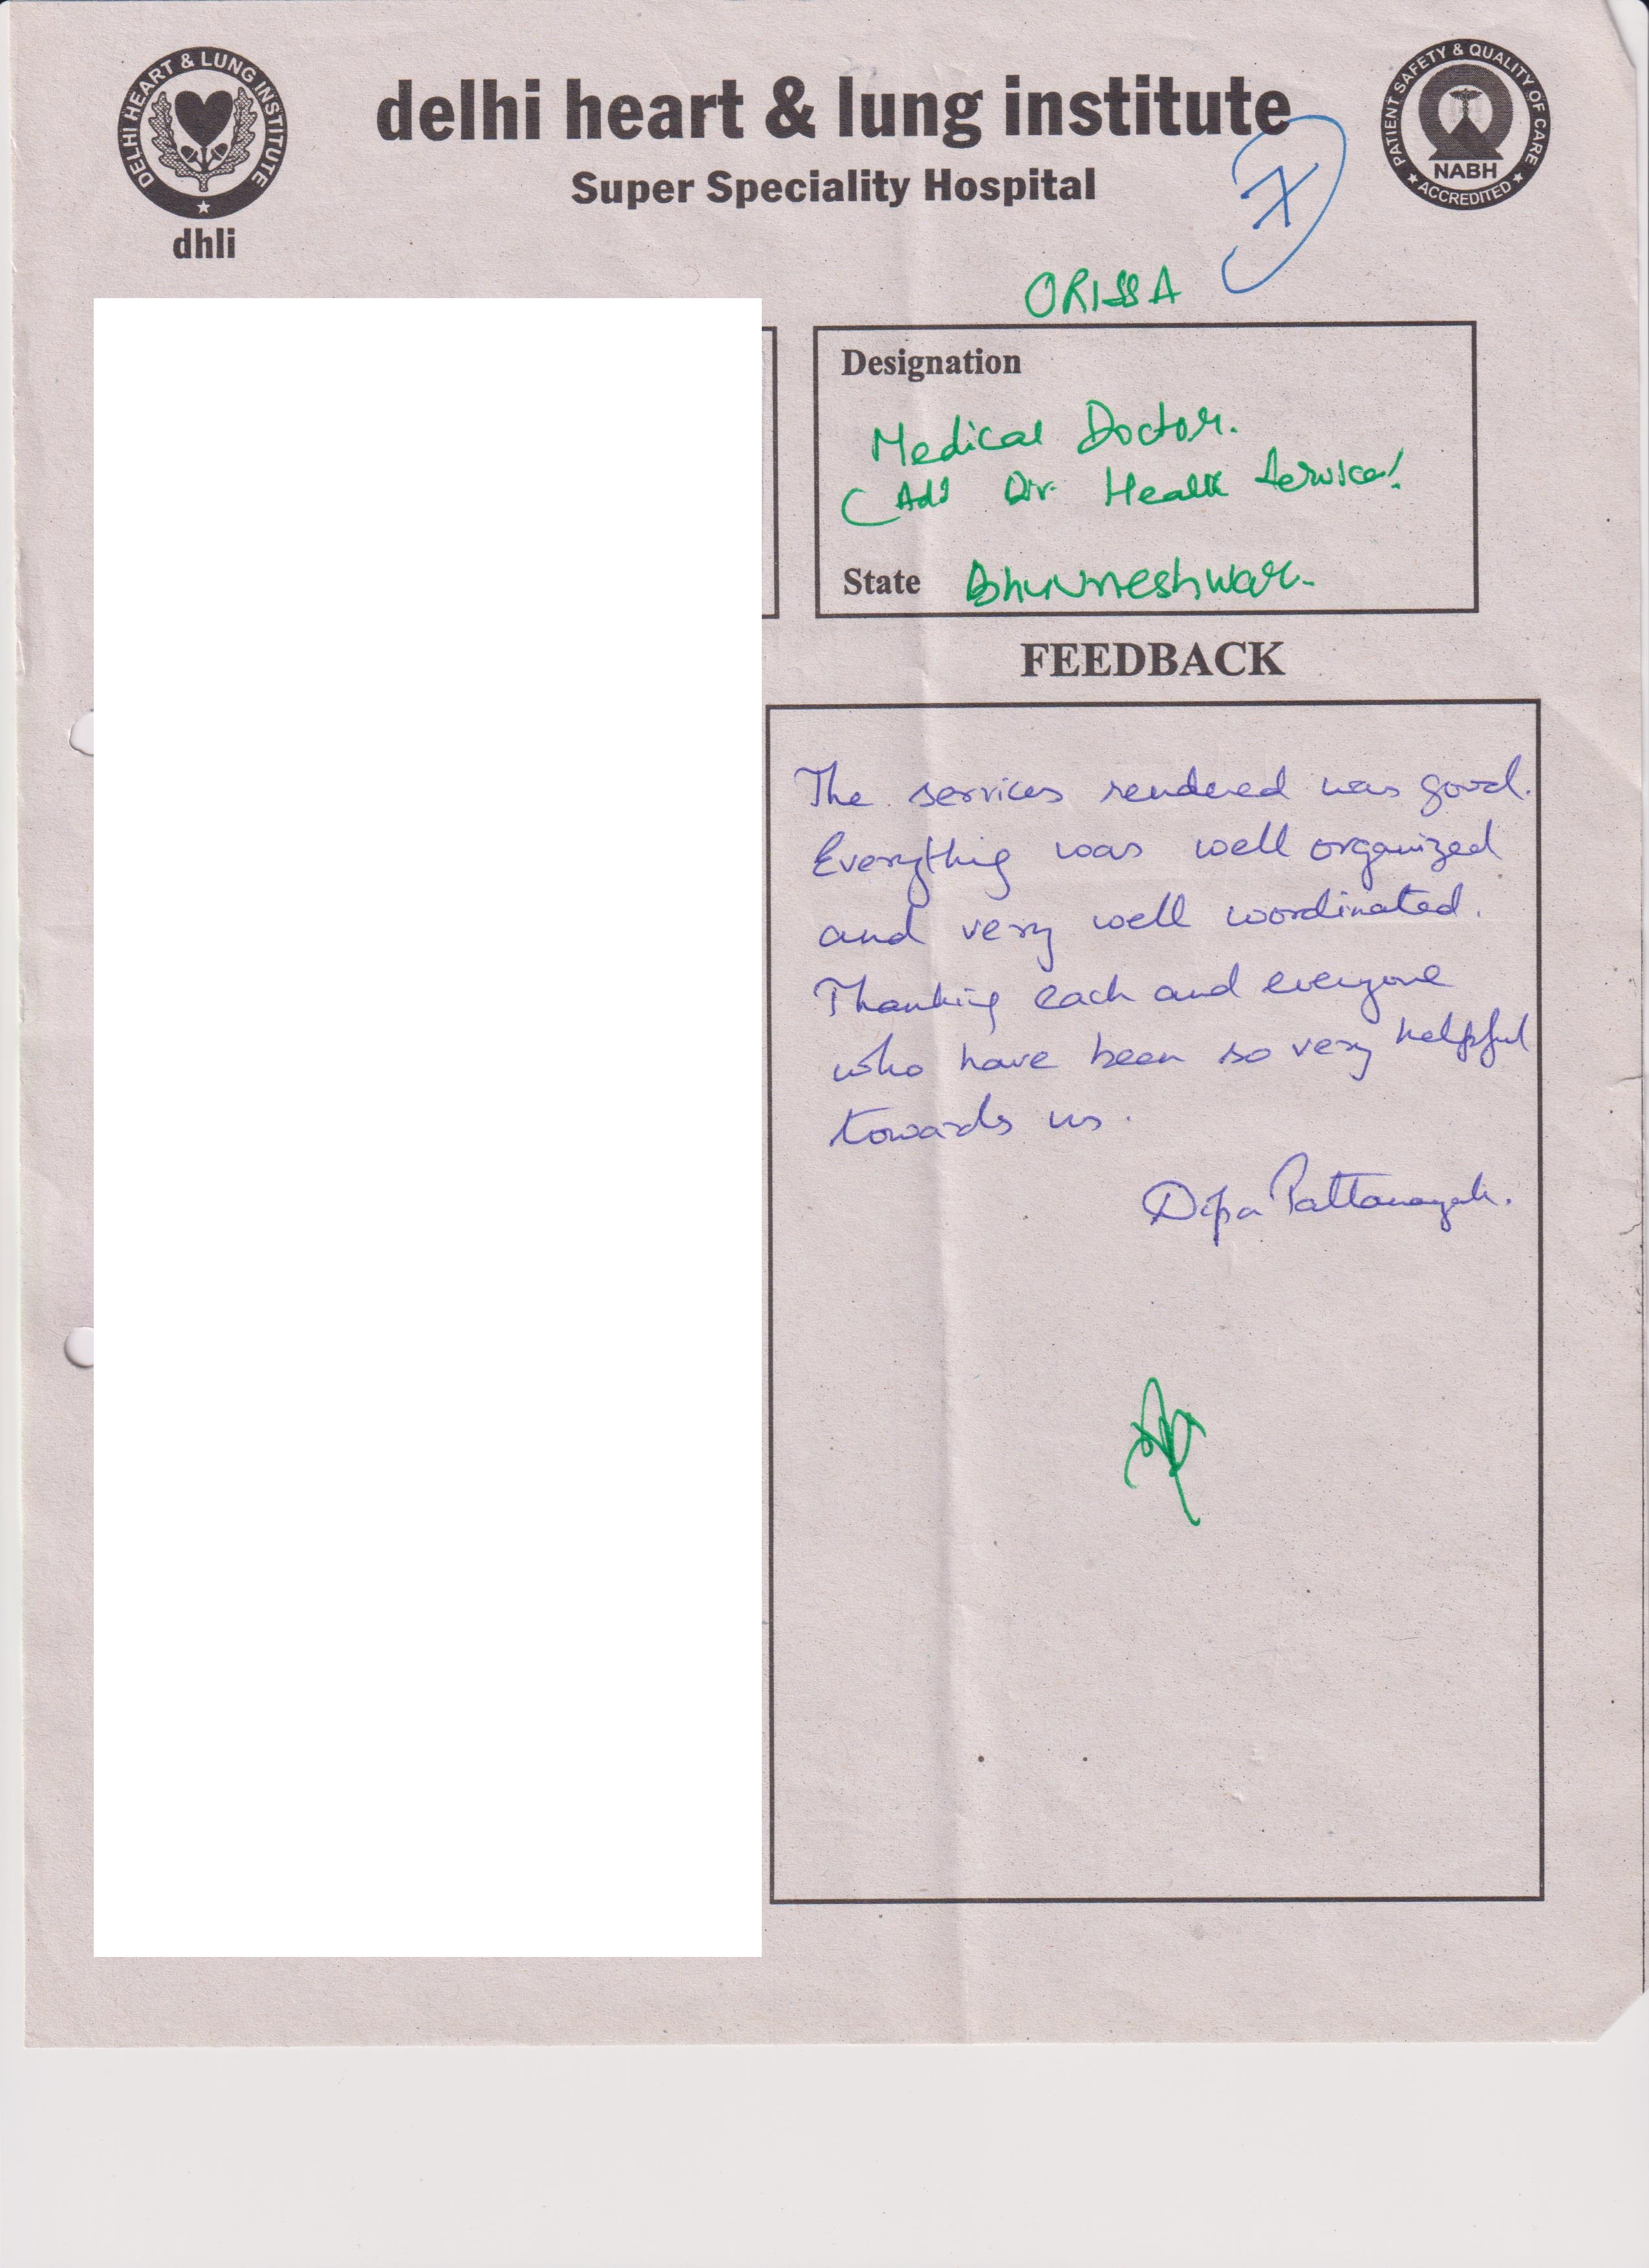 DELHI HEART & LUNG INSTITUTE
dhli
delhi heart & lung institute
Super Speciality Hospital
PATIENT SAFETY & QUALITY OF CARE
NABH
ACCREDITED
ORISSA
Designation
Medical Doctor.
(Add Dir. Health Services!
State Bhuvneshwar.
FEEDBACK
The services rendered was good.
Everything was well organized
and very well coordinated.
Thanking each and everyone
who have been so very helpful
towards us.
Dipa Pattanayak.